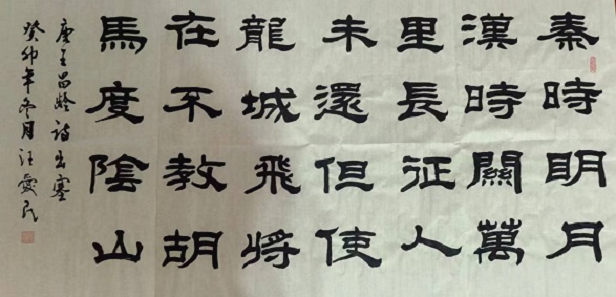 秦時明月
漢時關萬
里長征人
未還但使
龍城飛將
在不教胡
馬度陰山
唐王昌龄诗出塞
癸卯年冬月汪爱民